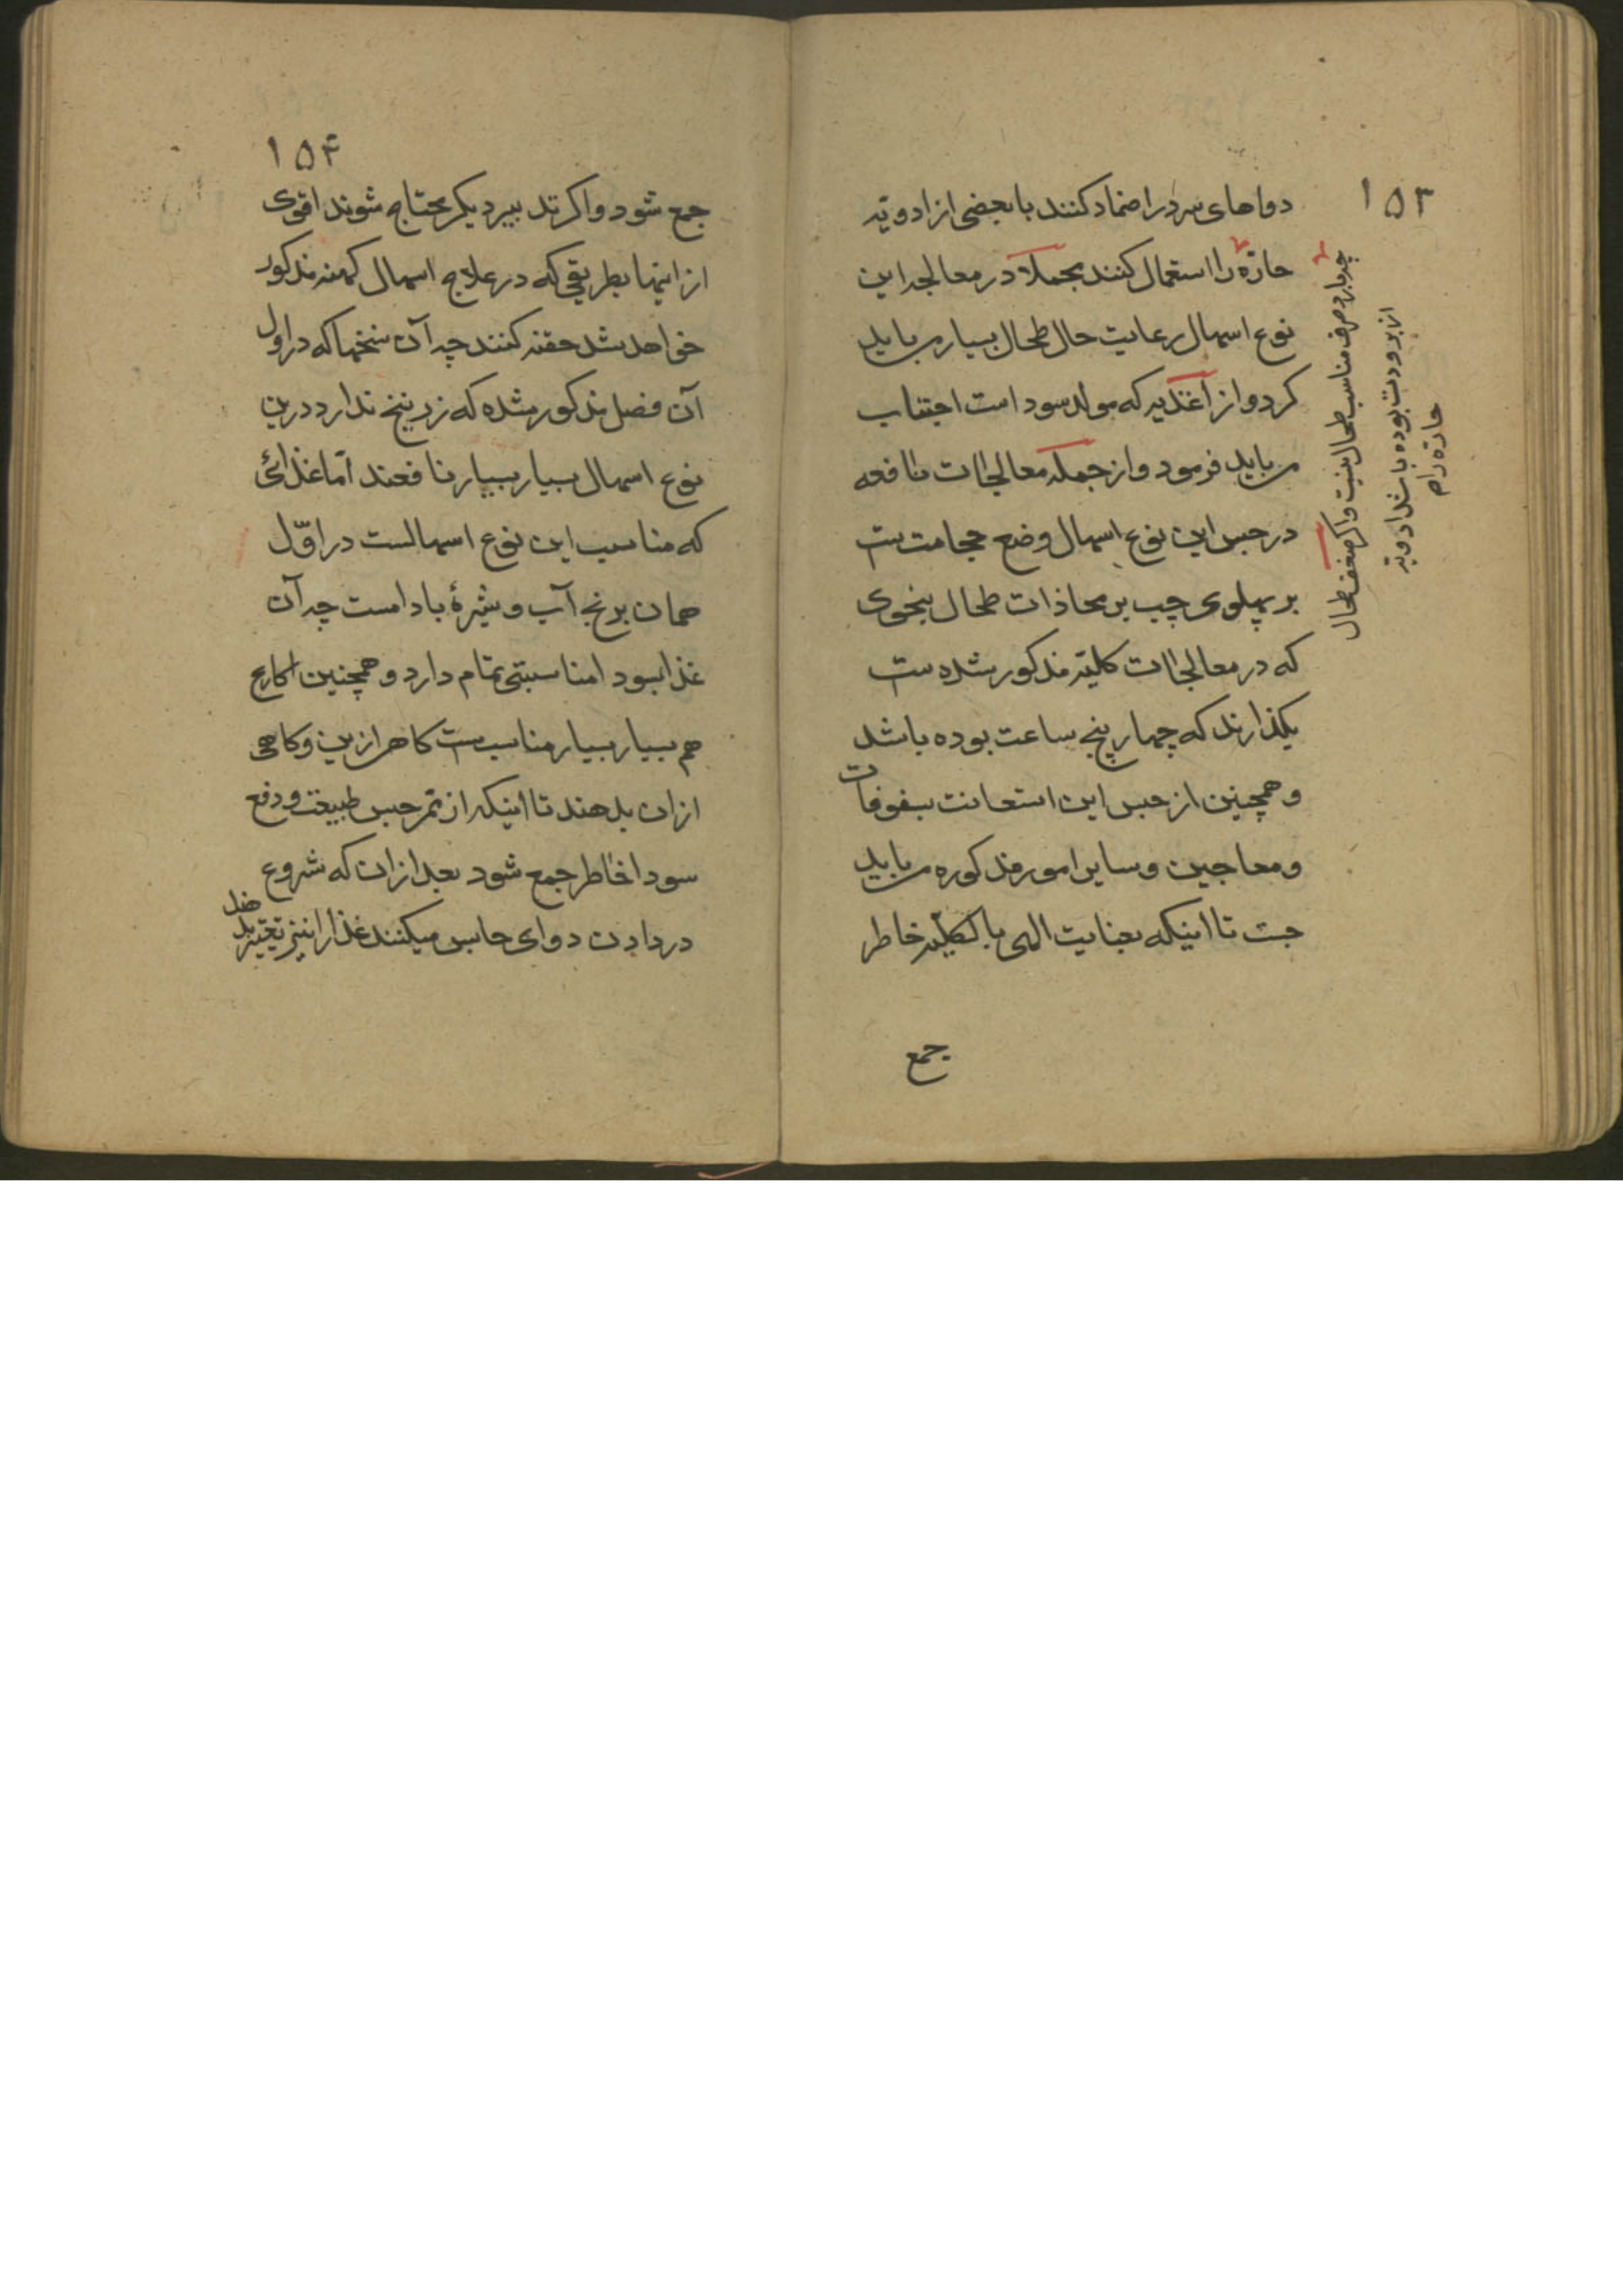 ۱۵۳
دواهای سرد را ضماد کنند با بعضی از ادویه
حارّه را استعمال کنند مجملاً در معالجه این
نوع اسهال رعایت حال طحال بسیار می باید
کرد و از اغذیه که مولد سودا است اجتناب
می باید فرمود و از جمله معالجات نافعه
در حبس این نوع اسهال وضع حجامت ست
بر پهلوی چپ بر محاذات طحال بنحوی
که در معالجات کلیّه مذکور شده ست
بکذارند که چهار پنج ساعت بوده باشد
و همچنین از حبس این استعانت بسفوفات
و معاجین و سایر امور مذکوره می باید
جست تا اینکه بعنایت الهی بالکلیّه خاطر
جمع
چه بارد صرف مناسب طحال نیست و اکر ضعف طحال
از برودت بوده باشد ادویه
حارّه را م
۱۵۴
جمع شود و اکر تدبیر دیکر محتاج شوند اقوی
از اینها بطریقی که در علاج اسهال کهنه مذکور
خواهد شد حقنه کنند چه آن نسخها که در اول
آن فصل مذکور شده که زرنیخ ندارد درین
نوع اسهال بسیار بسیار نافعند امّا غذائی
که مناسب این نوع اسهالست در اوّل
همان برنج آب و شیرۀ بادامست چه آن
غذا بسودا مناسبتی تمام دارد و همچنین اکارع
هم بسیار بسیار مناسب ست کاهی ازین و کاهی
ازان بدهند تا اینکه از ممر حبس طبیعت و دفع
سودا خاطر جمع شود بعد ازان که شروع
در دادن دوای حابس میکنند غذا را نیز تغییر بد
هند